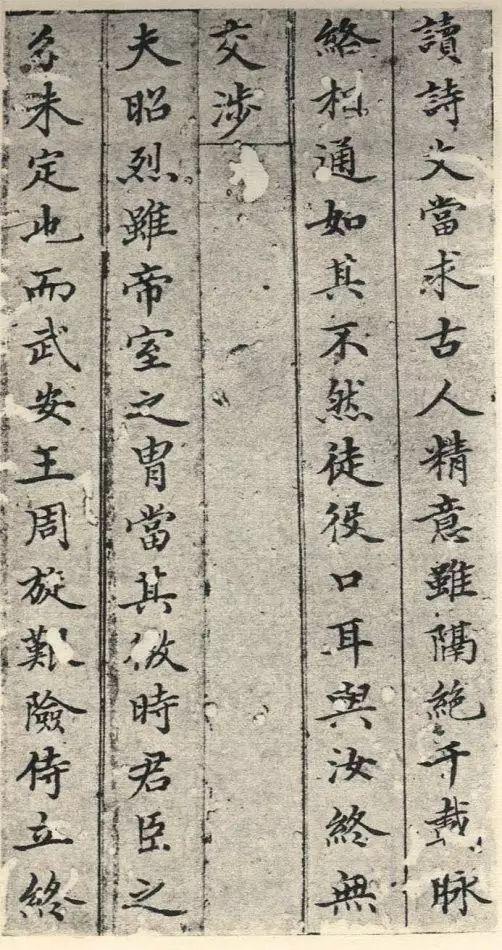 讀詩文當求古人精意雖隔絕千載脉
絡相通如其不然徒役口耳與汝終無
交涉
夫昭烈雖帝室之胄當其微時君臣之
名未定也而武安王周旋艱險侍立終